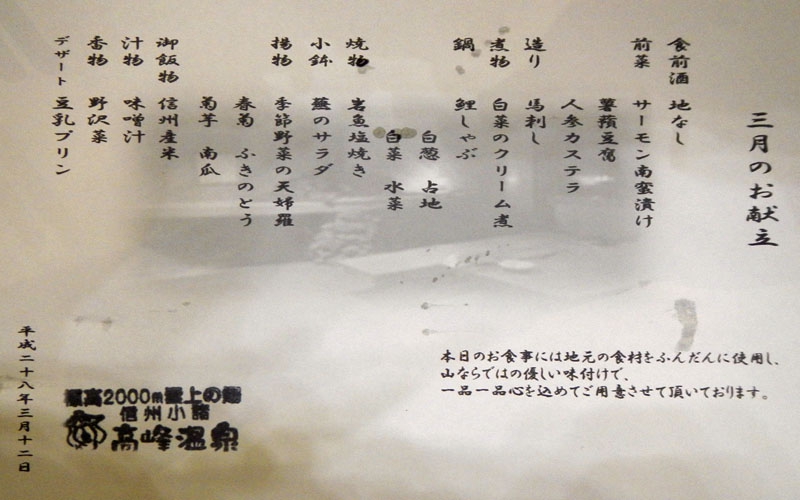 三月のお献立
食前酒 地なし
前菜 サーモン南蛮漬け
薯蕷豆腐
人参カステラ
造り 馬刺し
煮物 白菜のクリーム煮
鍋 鯉しゃぶ
白葱 占地
白菜 水菜
焼物 岩魚塩焼き
小鉢 蕪のサラダ
揚物 季節野菜の天婦羅
春菊 ふきのとう
菊芋 南瓜
御飯物 信州産米
汁物 味噌汁
香物 野沢菜
デザート 豆乳プリン
本日のお食事には地元の食材をふんだんに使用し、
山ならではの優しい味付けで、
一品一品心を込めてご用意させて頂いております。
標高2000m雲上の湯
信州小諸
高峰温泉
平成二十八年三月十二日